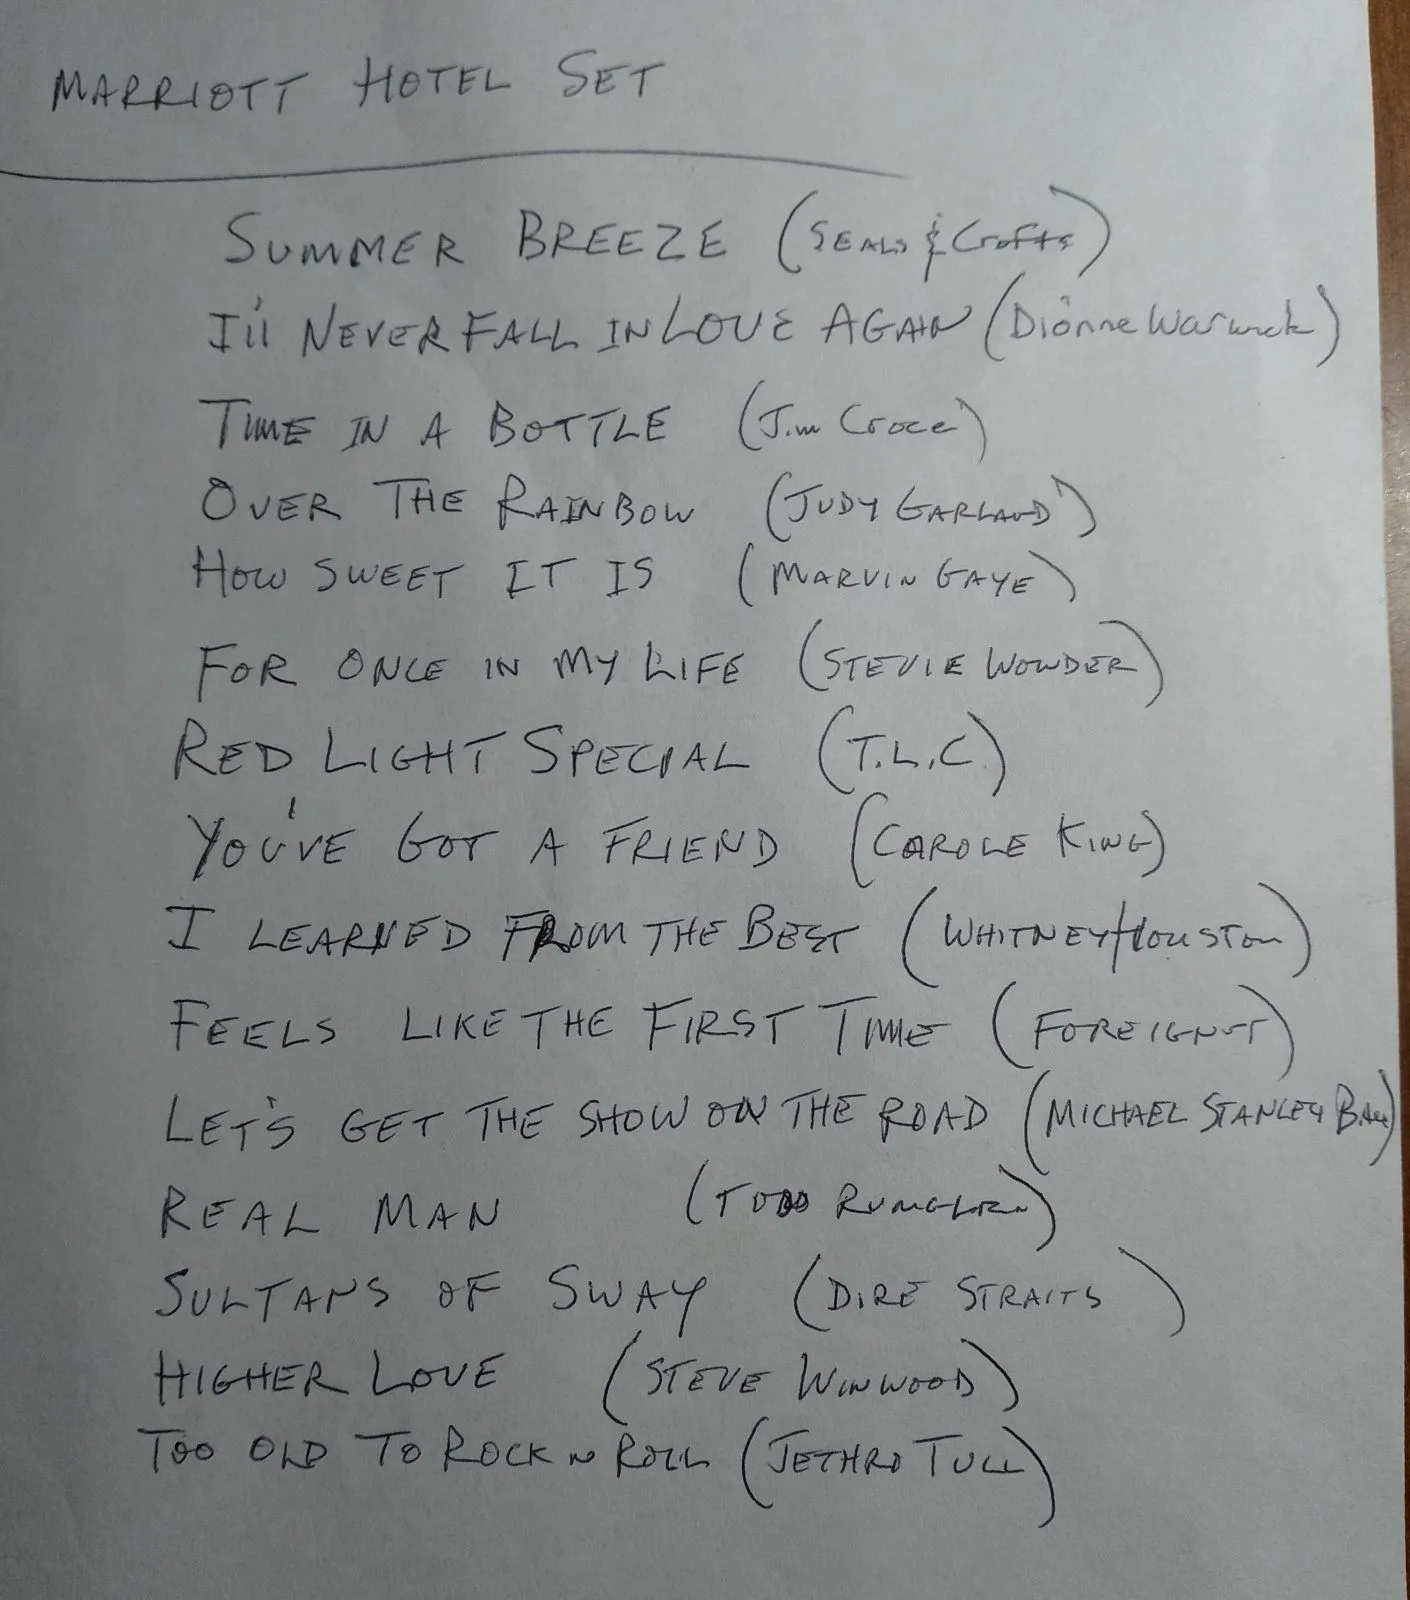 MARRIOTT HOTEL SET
SUMMER BREEZE (SEALS & Crofts)
I'll NEVER FALL IN LOVE AGAIN (Dionne Warwick)
TIME IN A BOTTLE (Jim Croce)
OVER THE RAINBOW (JUDY GARLAND)
HOW SWEET IT IS (MARVIN GAYE)
FOR ONCE IN MY LIFE (STEVIE WONDER)
RED LIGHT SPECIAL (T.L.C.)
YOU'VE GOT A FRIEND (CAROLE KING)
I LEARNED FROM THE BEST (WHITNEY HOUSTON)
FEELS LIKE THE FIRST TIME (FOREIGNER)
LET'S GET THE SHOW ON THE ROAD (MICHAEL STANLEY BAND)
REAL MAN (TODD RUNDGREN)
SULTANS OF SWAY (DIRE STRAITS)
HIGHER LOVE (STEVE WINWOOD)
TOO OLD TO ROCK N ROLL (JETHRO TULL)